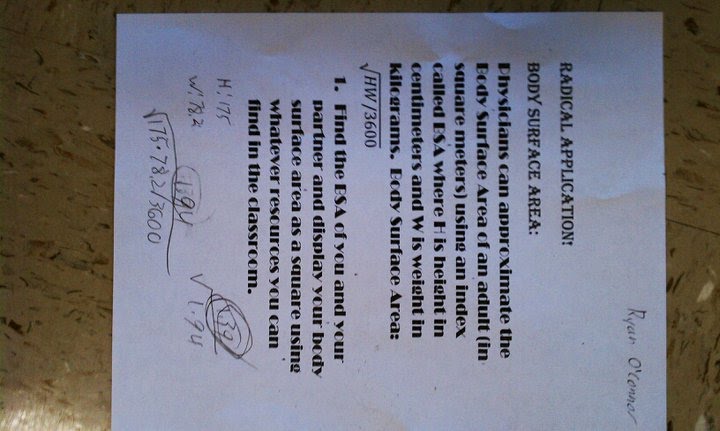 Ryan O'Connor
RADICAL APPLICATION!
BODY SURFACE AREA:
Physicians can approximate the
Body Surface Area of an adult (in
square meters) using an index
called BSA where H is height in
centimeters and W is weight in
kilograms. Body Surface Area:
√HW/3600
1. Find the BSA of you and your
partner and display your body
surface area as a square using
whatever resources you can
find in the classroom.
H: 175
W: 78.2
√175·78.2/3600
√1.94